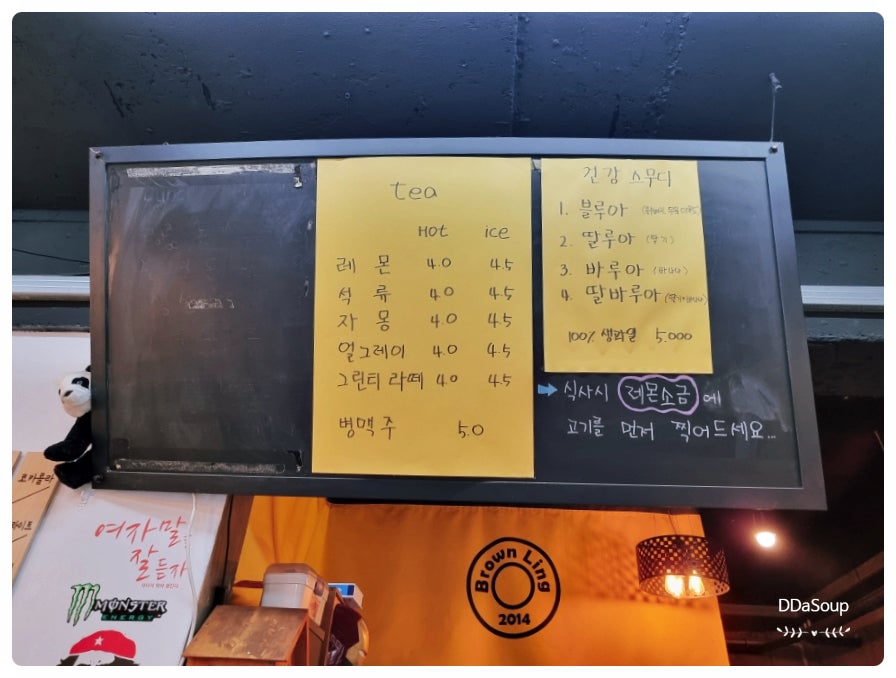 tea
HOT ice
레몬 4.0 4.5
석류 4.0 4.5
자몽 4.0 4.5
얼그레이 4.0 4.5
그린티 라떼 4.0 4.5
병맥주 5.0
건강 스무디
1. 블루아
2. 딸루아 (딸기)
3. 바루아 (바나나)
4. 딸바루아 (딸기+바나나)
100% 생과일 5.000
식사시 레몬소금에
고기를 먼저 찍어드세요...
여자말
잘듣자
MONSTER
ENERGY
Brown Ling
2014
DDaSoup